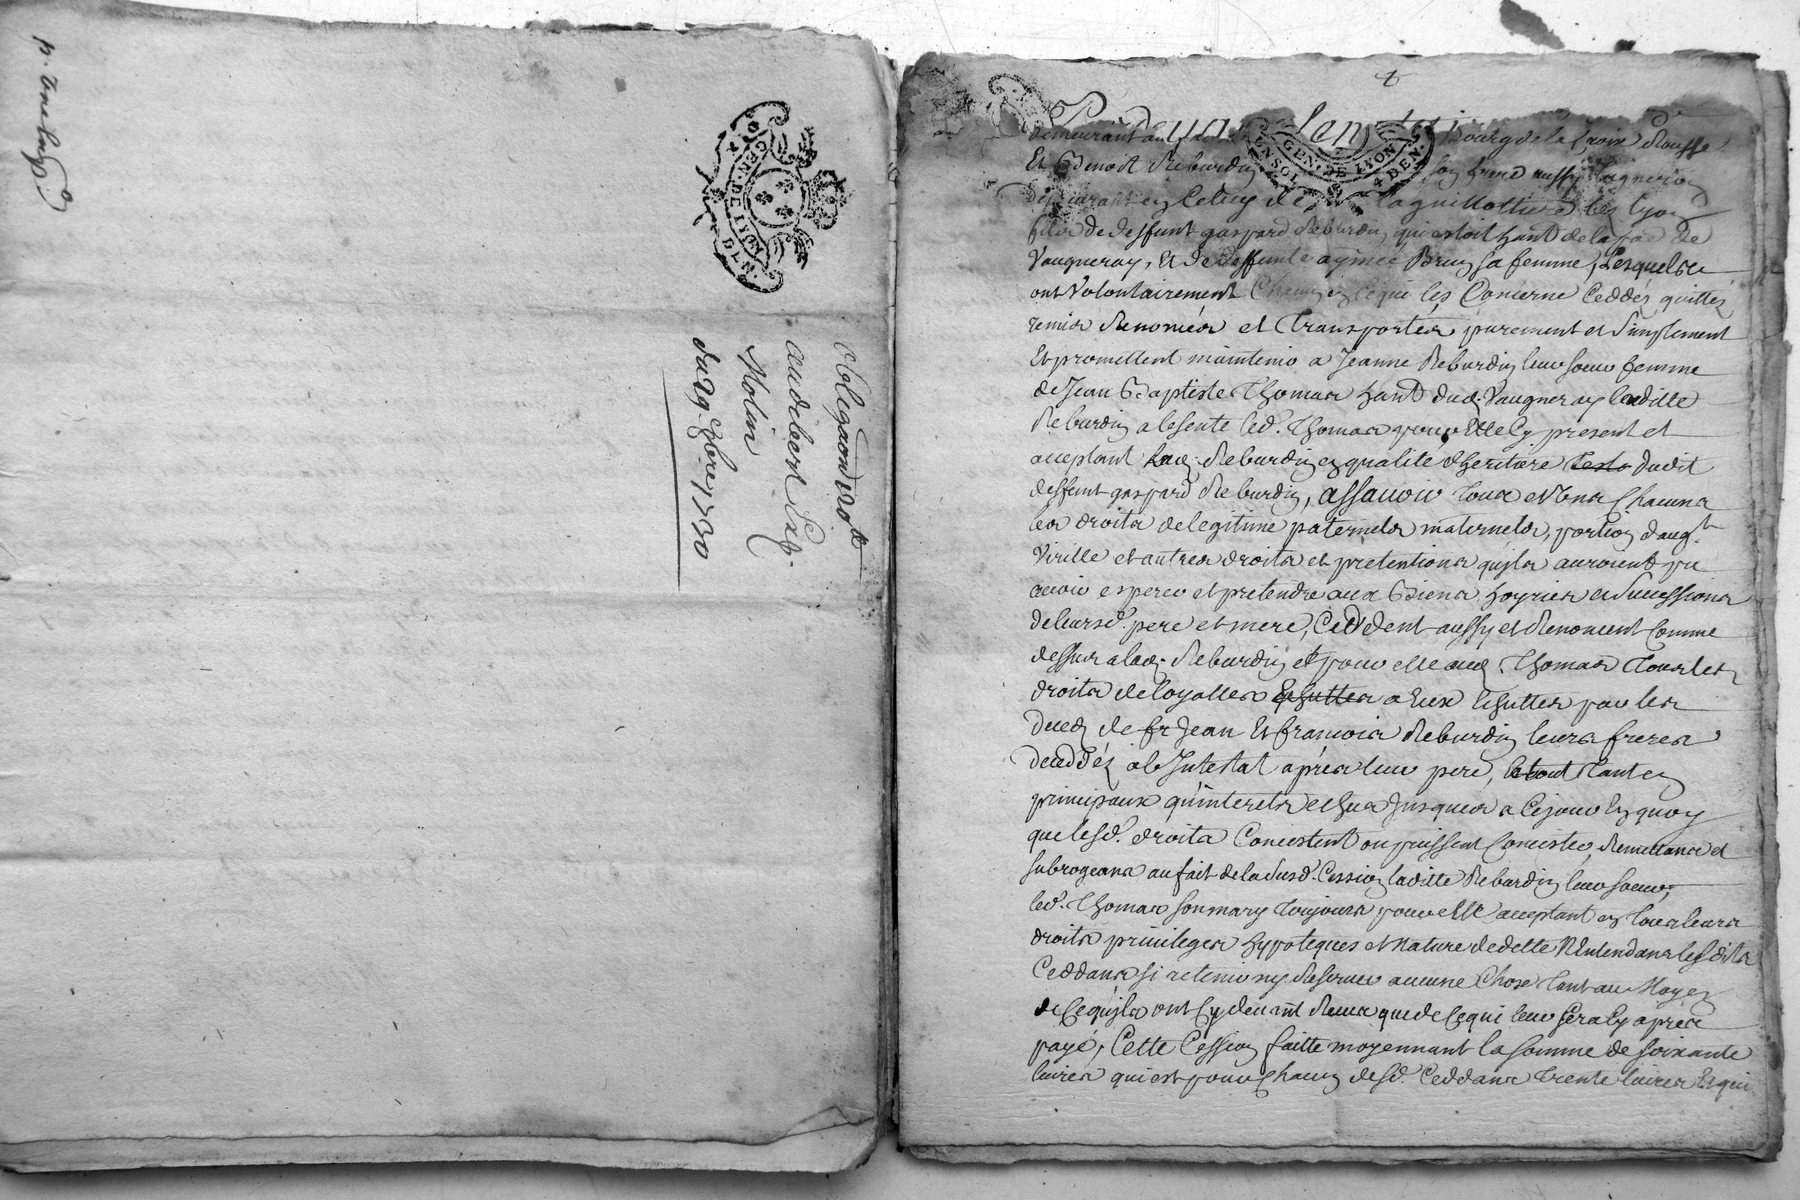 GEN. DE LYON
Obligaon d 80 lt
audibert
Molin
du 29 xbre 1730
GEN. DE LYON
UN SOL 4 DEN.
demeurant au bourg de la Croix Rousse
Et Benoit Reburdin son frere aussy vigneron
demeurant en celuy de la guillottiere les lyon
fils de deffunt gaspard Reburdin qui estoit hant de la par de
Vaugneray, et de deffunte aymée Brun sa femme, Lesquels
ont Volontairement Chacun en ce qui les Conserne Ceddés quittés
remis Renoncés et Transportés purement et simplement
Et promettent maintenir a Jeanne Reburdin leur soeur femme
de Jean Baptiste Thomas hant dud. Vaugneray laditte
Reburdin absente led. Thomas pour Elle Cy present et
aceptant lad. Reburdin en qualite dheritiere dudit
deffunt gaspard Reburdin, assavoir Tous et Uns Chacuns
les droits de legitime paternels maternels, portion d'augt
Virille et autres droits et pretentions quils auroient pu
avoir esperer et pretendre aux Biens hoyries et successions
de leursd. pere et mere, Ceddent aussy et Renoncent Comme
dessus a lad. Reburdin et pour elle aud. Thomas Tous les
droits de loyalles Echuttes a Eux Echuttes par les
deced de fr Jean Et francois Reburdin leurs freres
deceddés ab Intestat apres leur pere, le tout Tant en
principaux qu'interets echus Jusques a Ce jour En quoy
que lesd. droits Concistent ou puissent Concister, Remettans et
subrogeans au fait de la susd. Cession laditte Reburdin leur soeur,
led. Thomas son mary Toujours pour elle aceptant en Tous leurs
droits privileges hypoteques et Nature de dette N'Entendans lesdits
Ceddans si retenir ny Reserver aucune Chose Tant au Moyen
de Ce quils ont Cy devant Receus que de Ce qui leur sera Cy apres
payé, Cette Cession faitte moyennant la somme de soixante
livres qui est pour Chacun desd. Ceddans Trente livres Et qui